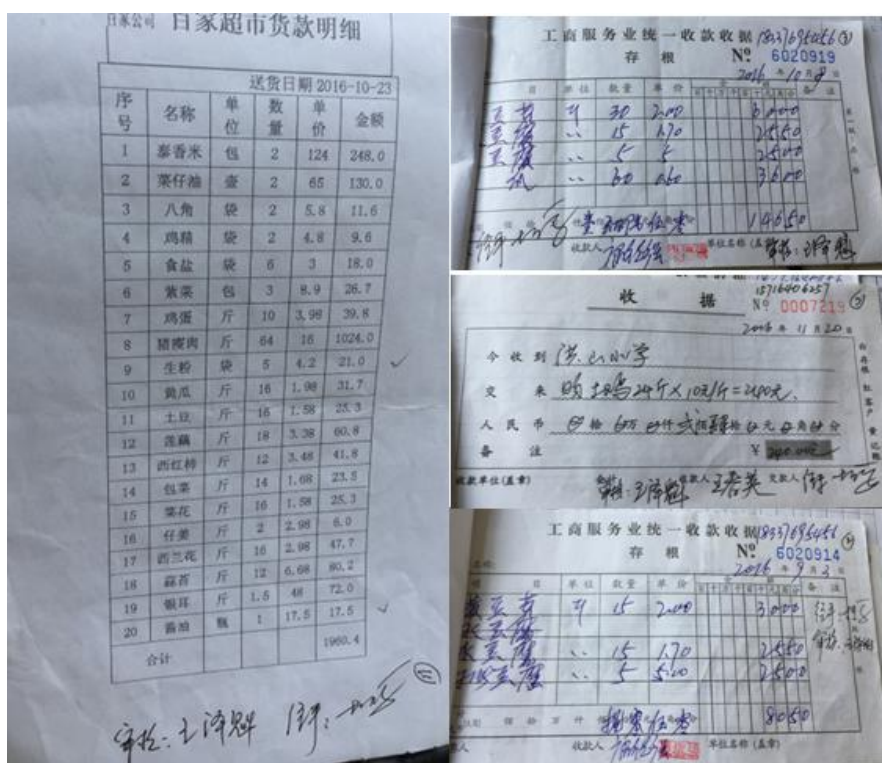 百家公司 百家超市货款明细
送货日期 2016-10-23
序号 名称 单位 数量 单价 金额
1 泰香米 包 2 124 248.0
2 菜仔油 壶 2 65 130.0
3 八角 袋 2 5.8 11.6
4 鸡精 袋 2 4.8 9.6
5 食盐 袋 6 3 18.0
6 紫菜 包 3 8.9 26.7
7 鸡蛋 斤 10 3.98 39.8
8 猪瘦肉 斤 64 16 1024.0
9 生粉 袋 5 4.2 21.0
10 黄瓜 斤 16 1.98 31.7
11 土豆 斤 16 1.58 25.3
12 莲藕 斤 18 3.38 60.8
13 西红柿 斤 12 3.48 41.8
14 包菜 斤 14 1.68 23.5
15 菜花 斤 16 1.58 25.3
16 仔姜 斤 2 2.98 6.0
17 西兰花 斤 16 2.98 47.7
18 蒜苔 斤 12 6.68 80.2
19 银耳 斤 1.5 48 72.0
20 酱油 瓶 1 17.5 17.5
合计 1960.4
审验:王泽魁
工商服务业统一收款收据 18337695456
存 根 № 6020919
2016 年 10 月 9 日
目 单位 数量 单价 备注
斤 30 2.00 6000
15 1.70 2550
豆腐 5 5 2500
60 0.60 3600
14650
收款人 单位名称(盖 王泽魁
收 据 15716406257
№ 0007219
2016 年 11 月 20 日
今收到 洪山小学
交来 购土鸡24斤×10元/斤=240元
人民币
备注 ¥ 240.00元
收款单位(盖章) 王泽魁 收款人 王春英 交款人
工商服务业统一收款收据 18337695456
存 根 № 6020914
2016 年 9 月 3 日
目 单位 数量 单价 备注
斤 15 2.00 3000
15 1.70 2550
豆腐 5 5.00 2500
8050
收款人 单位名称(盖章)